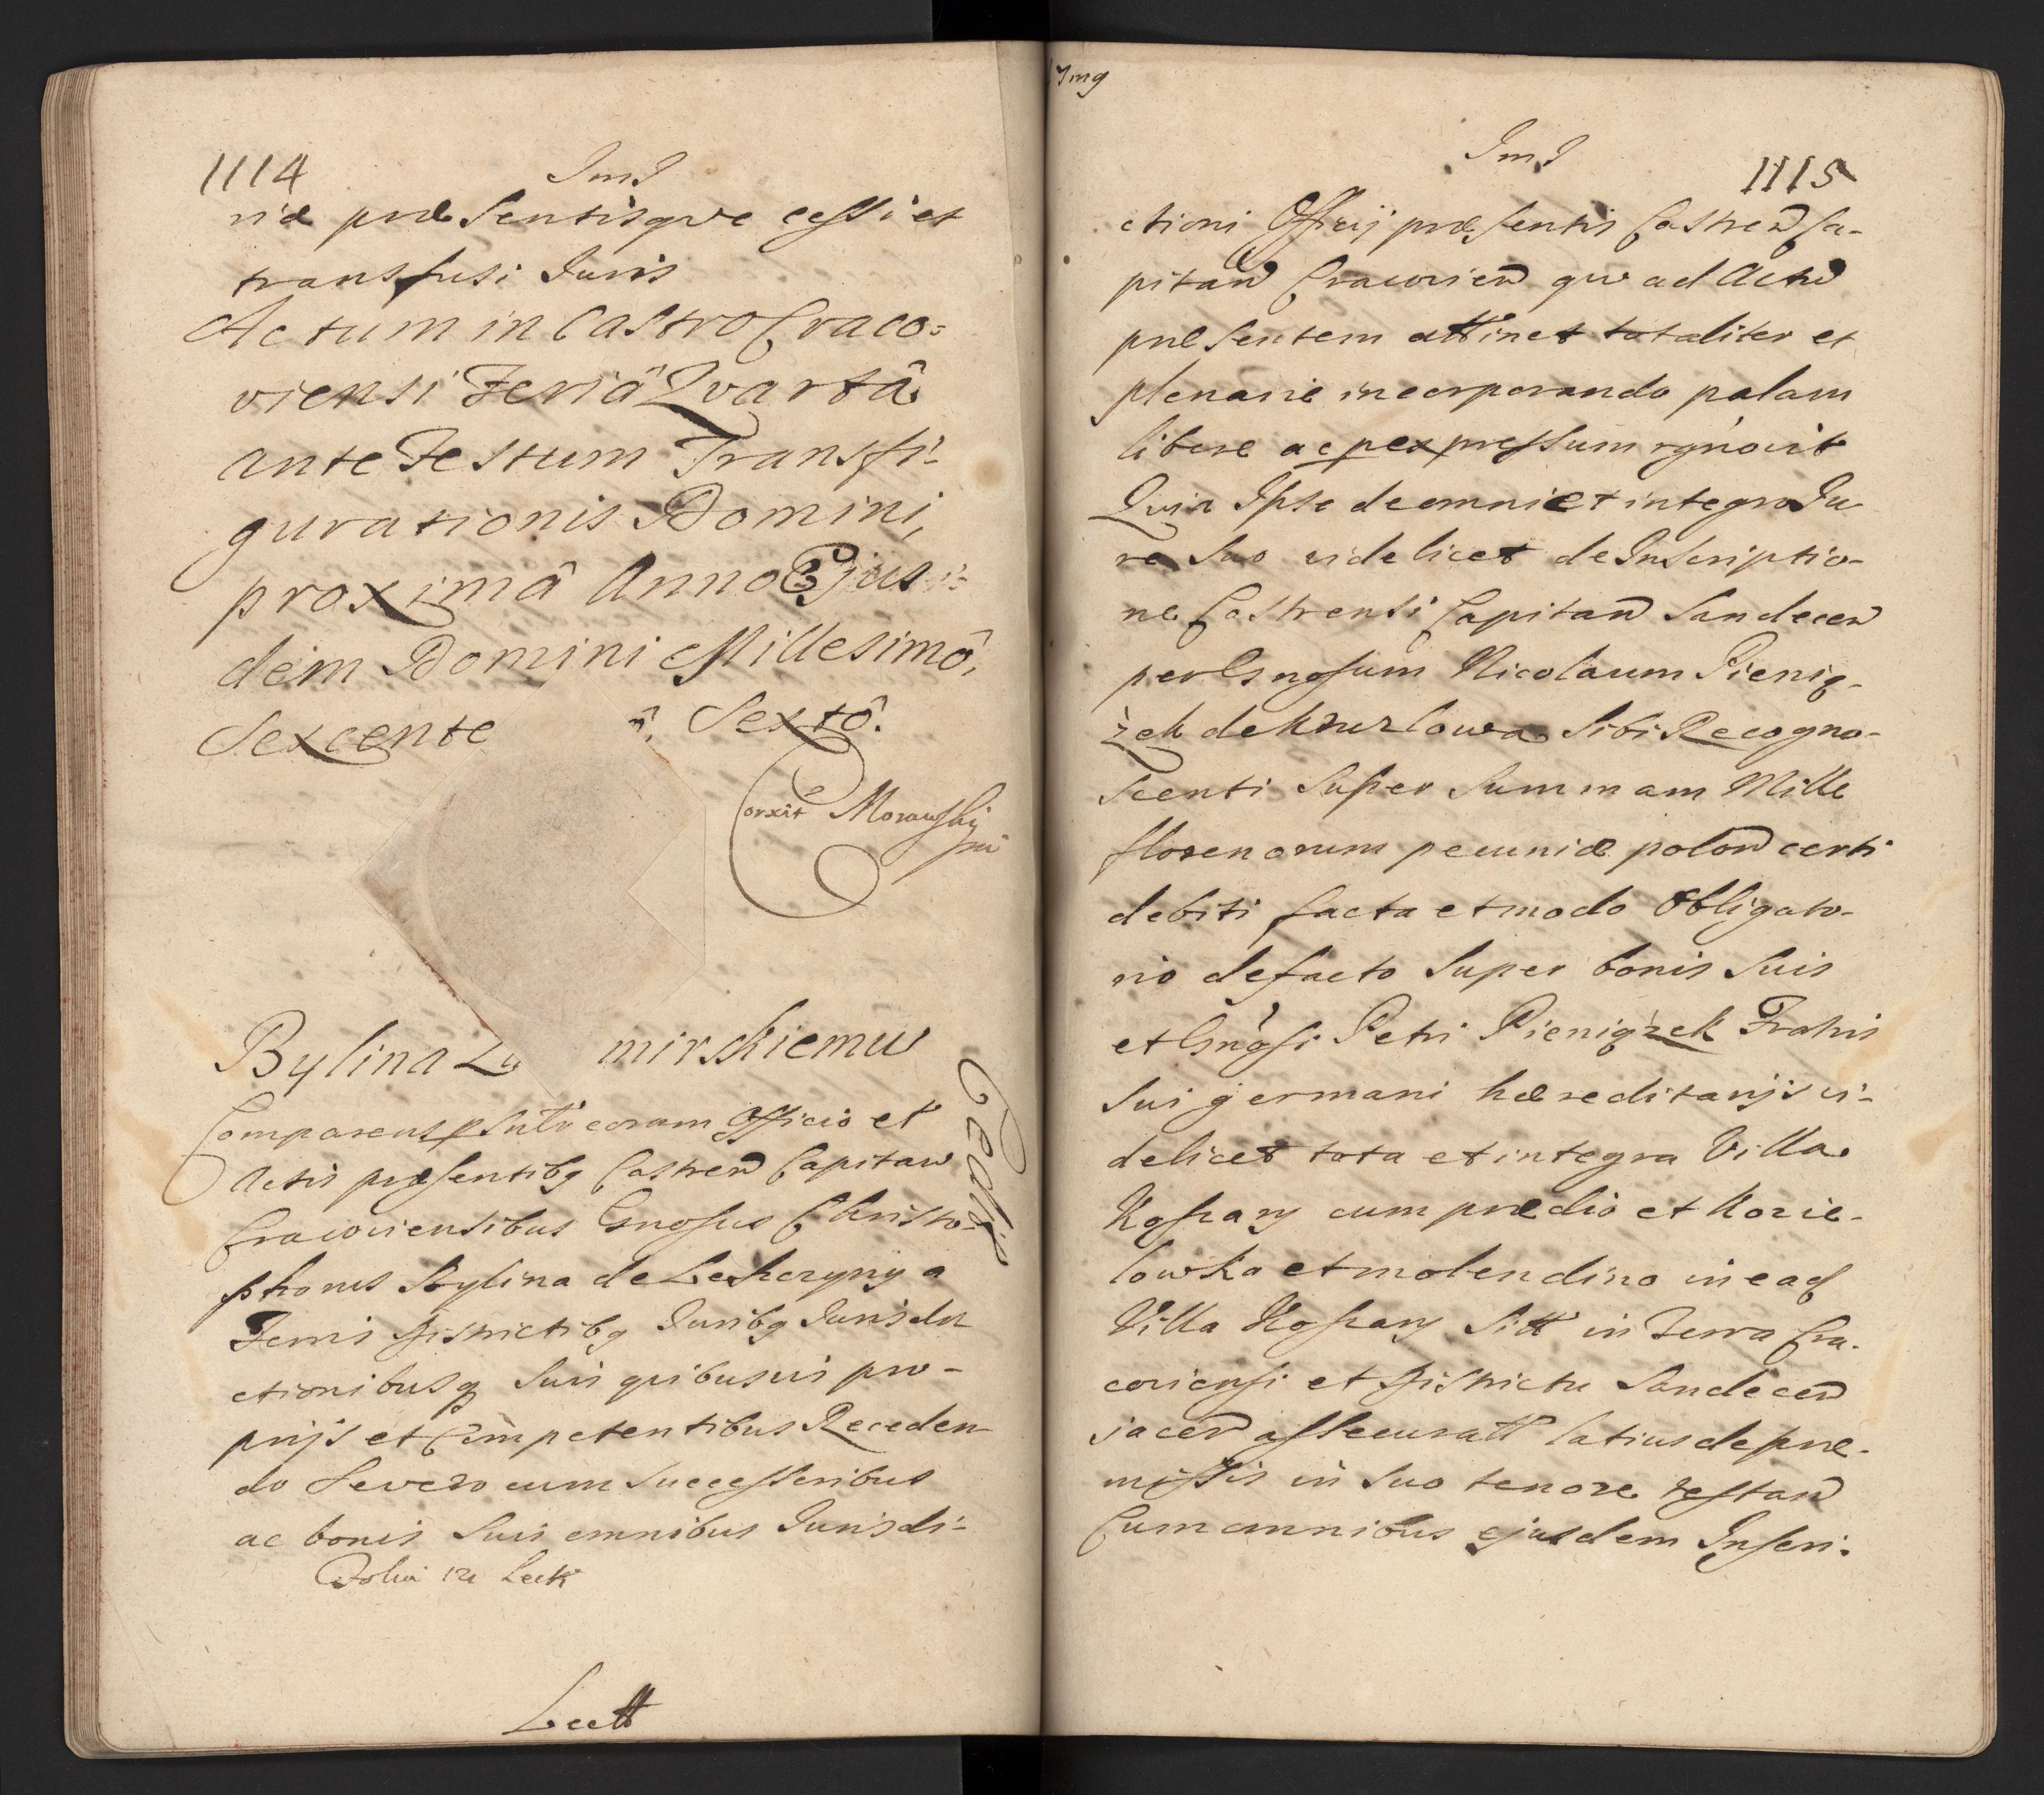 1114
Ind
riæ præsentisque cessi et
transfusi Juris
Actum in Castro Craco=
viensi Feriâ Qvartâ
ante Festum Transfi-
gurationis Domini,
proximâ Anno Ejus-
dem Domini Millesimô,
Sexcente ô, Sextô.
Corxit Morawskj
mp
Bylina Lu mirskiemu
Cedit
Comparens psnłr coram Officio et
Actis præsentibq Castren Capitan
Cracoviensibus Gnosus Christo-
phorus Bylina de Leszczyny a
Terris Districtibq Juribq Jurisdi
ctionibusq Suis quibusvis pro-
prijs et Competentibus Receden-
do Se vero cum Successoribus
ac bonis Suis omnibus Jurisdi-
Lectt
Img
Ind
1115
ctioni Officij præsentis Castren Ca-
pitan Cracovien qvo ad Actu
præsentem attinet totaliter et
plenarie incorporando palam
libere ac p expressum rgnovit
Quia Ipse de omni et integro Ju
re Suo videlicet de Inscriptio-
ne Castrensi Capitan Sandecen
per Gnosum Nicolaum Pienią-
żek de Kruzlowa Sibi Recogno-
scenti Super Summam Mille
florenorum pecuniæ polon certi
debiti facta et modo Obligato-
rio de facto Super bonis Suis
et Gnosi Petri Pieniążek Fratris
Sui germani hæreditarijs vi-
delicet tota et integra Villa
Kąszany cum prædio et Kozie-
lowka et molendino in ead
Villa Kąsany Sitt in Terra Cra-
coviensi et Districtu Sandecen
jacen assecuratt latius de præ-
missis in Suo tenore restan
Cum omnibus ejusdem Inscri-